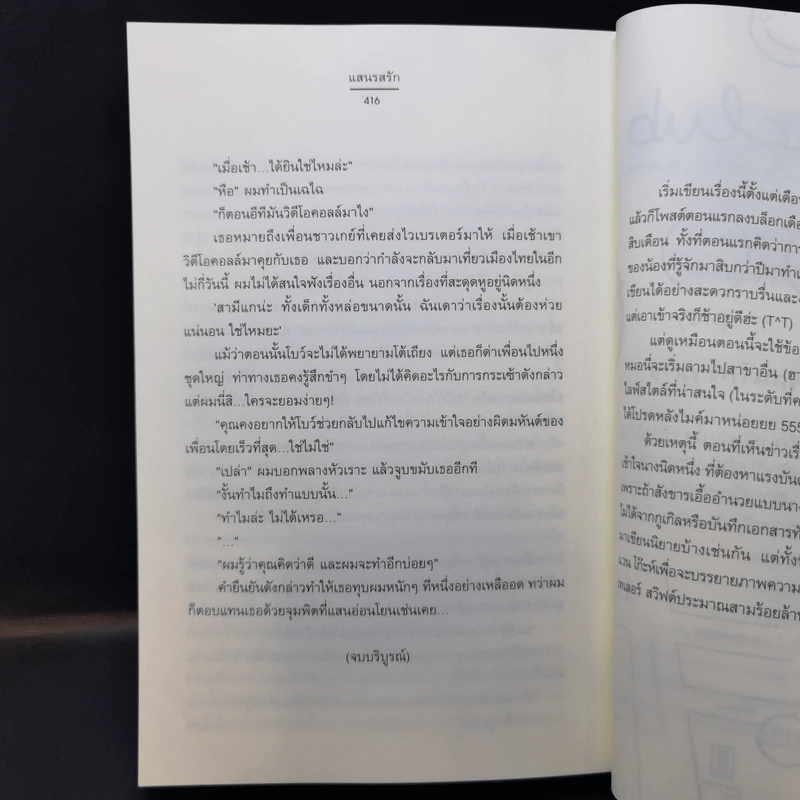 แสนรสรัก
416
"เมื่อเช้า...ได้ยินใช่ไหมล่ะ"
"หือ" ผมทำเป็นเฉไฉ
"ก็ตอนอีทีมันวิดีโอคอลล์มาไง"
เธอหมายถึงเพื่อนชาวเกย์ที่เคยส่งไวเบรเตอร์มาให้ เมื่อเช้าเขา
วิดีโอคอลล์มาคุยกับเธอ และบอกว่ากำลังจะกลับมาเที่ยวเมืองไทยในอีก
ไม่กี่วันนี้ ผมไม่ได้สนใจฟังเรื่องอื่น นอกจากเรื่องที่สะดุดหูอยู่นิดหนึ่ง
'สามีแกน่ะ ทั้งเด็กทั้งหล่อขนาดนั้น ฉันเดาว่าเรื่องนั้นต้องห่วย
แน่นอน ใช่ไหมยะ'
แม้ว่าตอนนั้นโบว์จะไม่ได้พยายามโต้เถียง แต่เธอก็ด่าเพื่อนไปหนึ่ง
ชุดใหญ่ ท่าทางเธอคงรู้สึกขำๆ โดยไม่ได้คิดอะไรกับการกระเซ้าดังกล่าว
แต่ผมนี่สิ...ใครจะยอมง่ายๆ!
"คุณคงอยากให้โบว์ช่วยกลับไปแก้ไขความเข้าใจอย่างผิดมหันต์ของ
เพื่อนโดยเร็วที่สุด...ใช่ไม่ใช่"
"เปล่า" ผมบอกพลางหัวเราะ แล้วจูบขมับเธออีกที
"งั้นทำไมถึงทำแบบนั้น..."
"ทำไมล่ะ ไม่ได้เหรอ..."
"..."
"ผมรู้ว่าคุณคิดว่าดี และผมจะทำอีกบ่อยๆ"
คำยืนยันดังกล่าวทำให้เธอทุบผมหนักๆ ทีหนึ่งอย่างเหลืออด ทว่าผม
ก็ตอบแทนเธอด้วยจุมพิตที่แสนอ่อนโยนเช่นเคย...
(จบบริบูรณ์)
เริ่มเขียนเรื่องนี้ตั้งแต่เดือ
แล้วก็โพสต์ตอนแรกลงบล็อกเดือ
สิบเดือน ทั้งที่ตอนแรกคิดว่าการ
ของน้องที่รู้จักมาสิบกว่าปีมาทำเ
เขียนได้อย่างสะดวกราบรื่นและ
แต่เอาเข้าจริงก็ช้าอยู่ดีฮ่ะ (T^T)
แต่ดูเหมือนตอนนี้จะใช้ข้อ
หมอนี่จะเริ่มลามไปสาขาอื่น (ฮา
ไลฟ์สไตล์ที่น่าสนใจ (ในระดับที่ค
ได้โปรดหลังไมค์มาหน่อยยย 555
ด้วยเหตุนี้ ตอนที่เห็นข่าวเรื่
เข้าใจนางนิดหนึ่ง ที่ต้องหาแรงบันด
เพราะถ้าสังขารเอื้ออำนวยแบบนาง
ไม่ได้จากกูเกิลหรือบันทึกเอกสารทั
มาเขียนนิยายบ้างเช่นกัน แต่ทั้งนี้
แวน โก๊ะห์เพื่อจะบรรยายภาพความ
เทเลอร์ สวิฟต์ประมาณสามร้อยล้าน